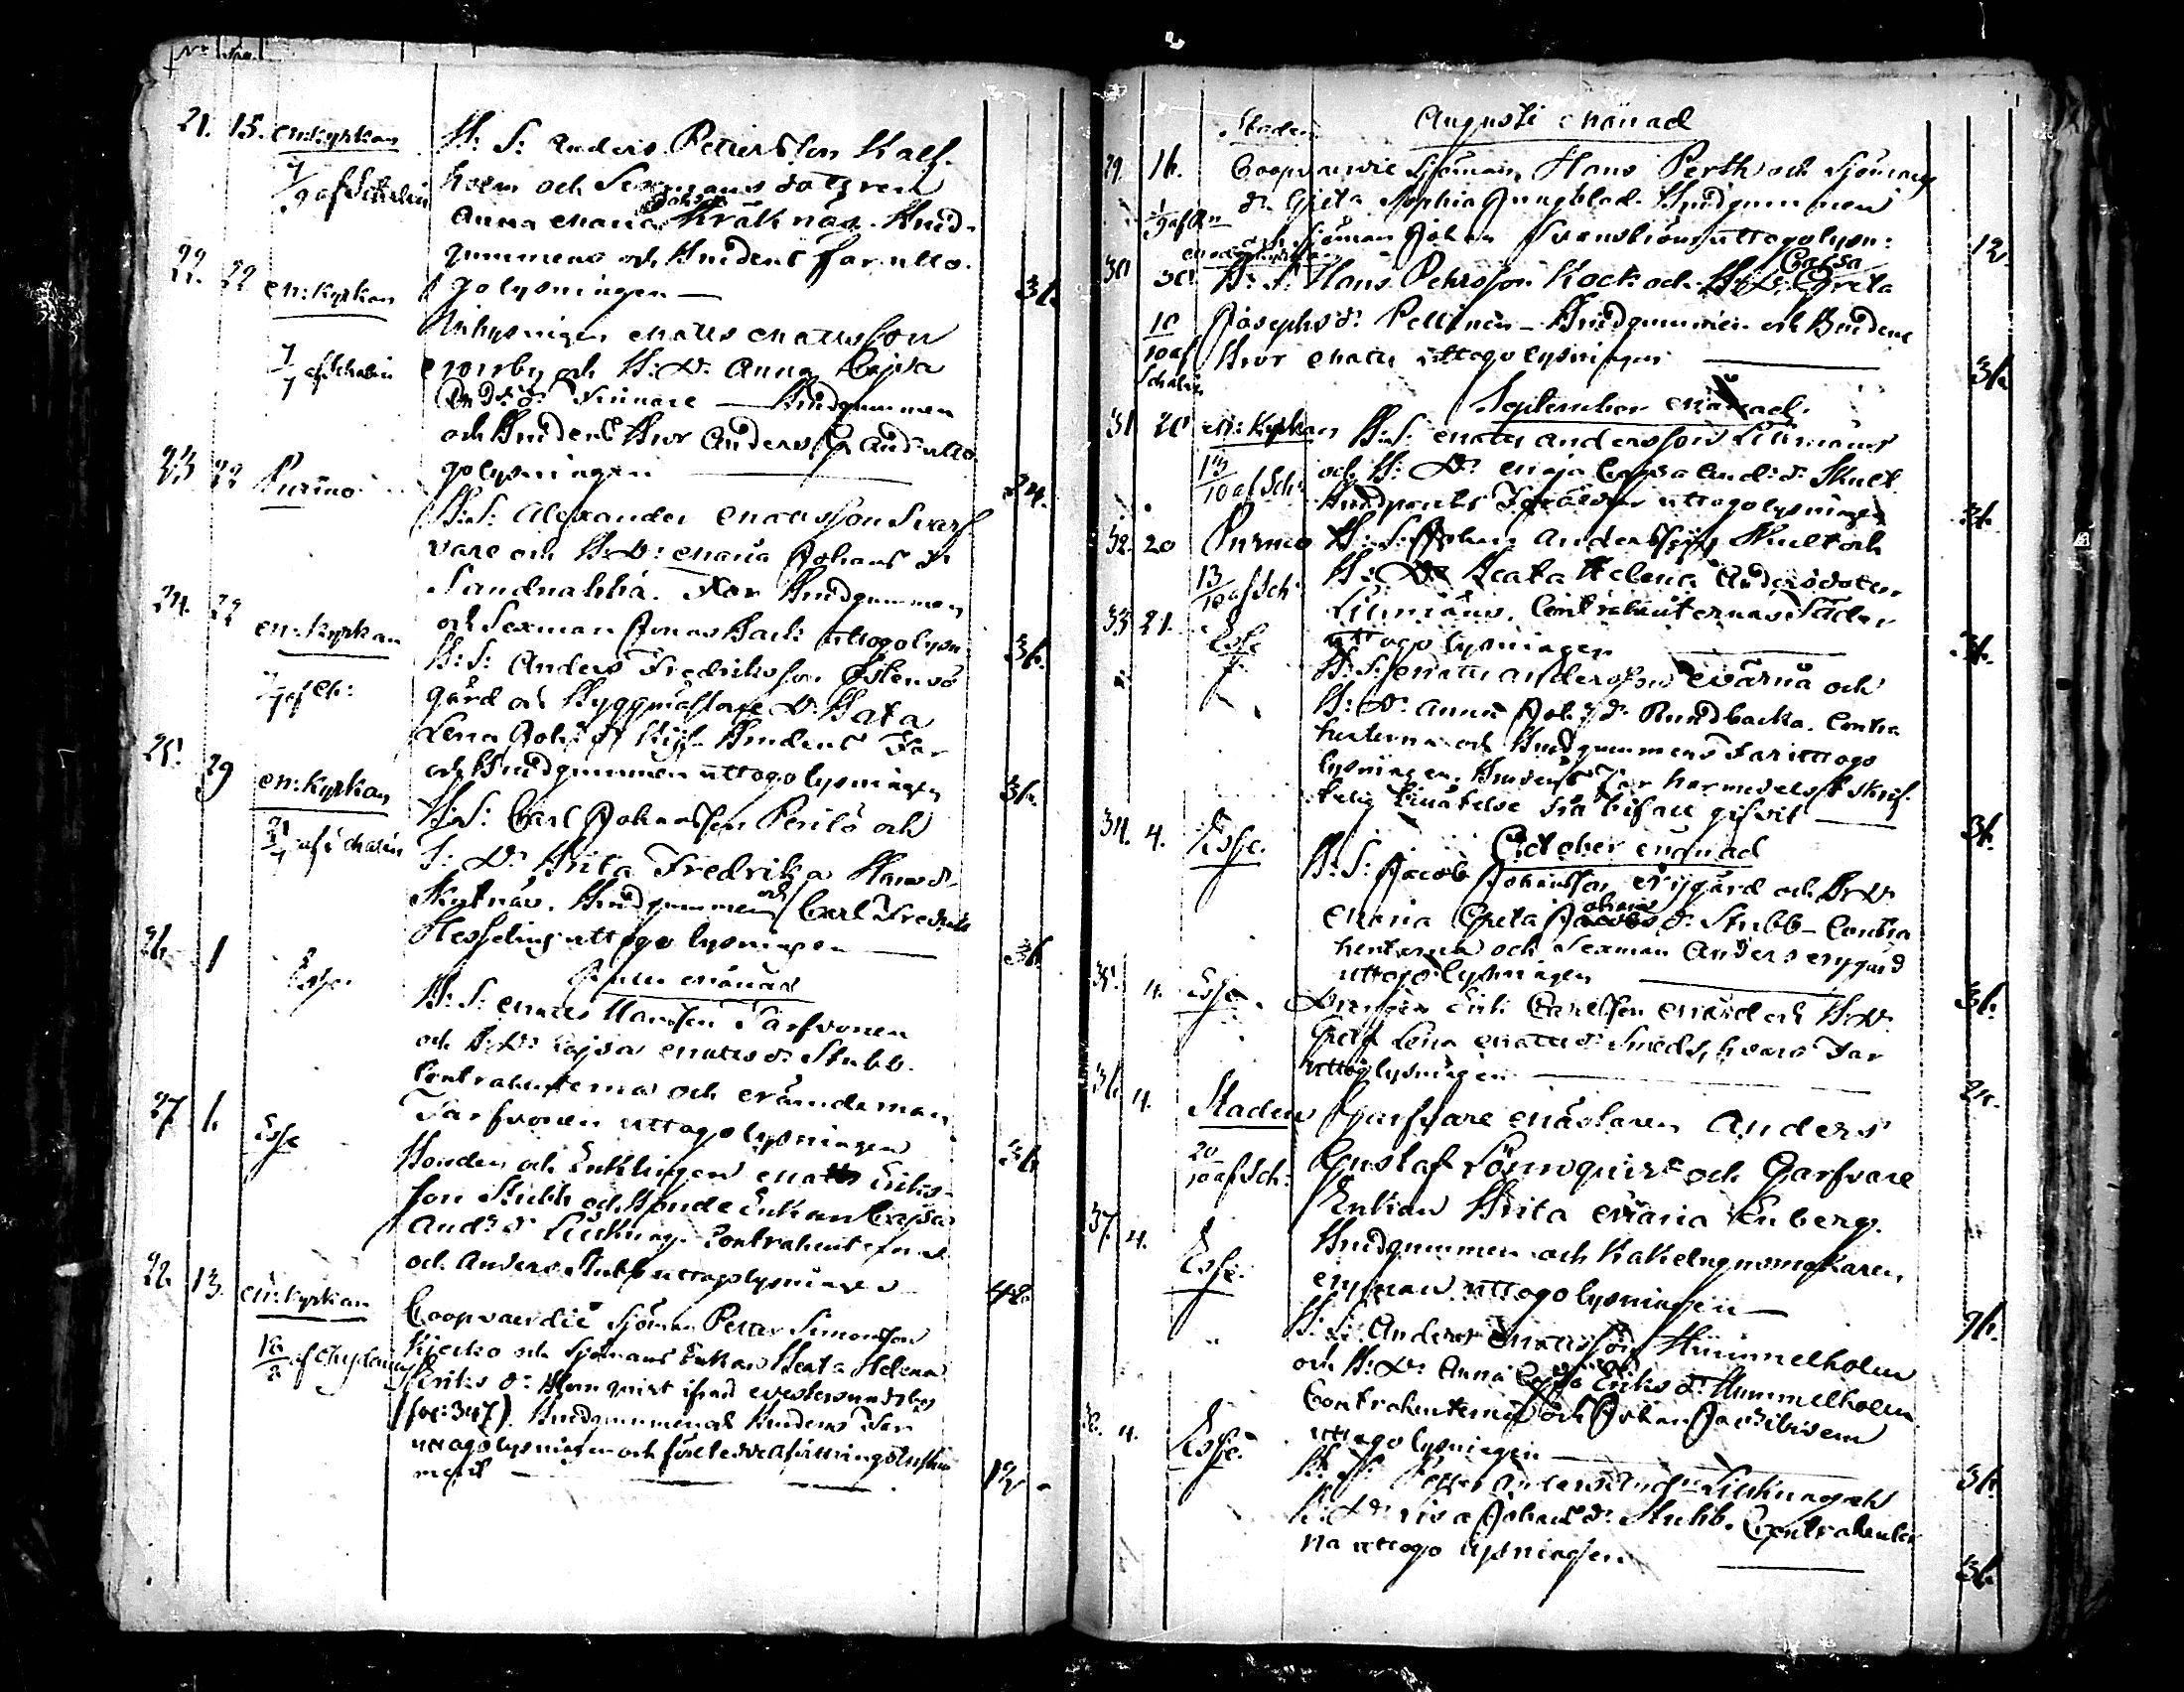 21. 15. M: Kyrkan B: S: Anders Pettersson Kalf-
holm och Sexmans dottren
Anna Maria Johs dr Kråknäs. Brud-
gummens och Brudens Far utto-
go lysningen — 36.
22. 22 M: Kyrkan Inhysingen Matts Mattsson
och B: D: Anna Cajsa
And: dr Finnäre — Brudgummen
och Brudens Bror Anders And: utto-
go lysningen — 24.
23. 22 Purmo B: S: Alexander Mattsson Svarf-
vare och B: D: Maria Johans dr
Sandnabba. Far Brudgummen
och Sexman Jonas Back uttogo lysn:
24. 22 M: Kyrkan B: S: Anders Fredriksson Östensö
gård och Byggmästare D: Beata
Lena Joh: dr Brudens Far
och Brudgummen uttogo lysningen 36.
25. 29 M: Kyrkan B: S: Carl Johansson Perilö och
D: Brita Fredrika Hans dr
Skutnäs. Brudgummen och Carl Fredrik
Hesseling uttogo lysningen — 36.
Junii Månad
26. 1 Esse B: S: Matts Hansson Tarfvonen
och B: D: Cajsa Matts dr Stubb.
Contrahenterna och Nämndeman
Tarfvonen uttogo lysningen 36.
27. 6. Esse Bonden och Enklingen Matts Eriks-
son Stubb och Bonde Enkan Cajsa
And: dr Lillkung. Contrahenterna
och Anders Stubb uttogo lysningen 42.
28. 13. M: Kyrkan Coopvaerdie Sjöman Petter Simonsson
och Sjömans Enkan Beata Helena
Eriks dr Blomqvist ifrån Westersundsby
(fol: 347). Brudgummen och Brudens Far
uttogo lysningen och företedde afvittrings Instru-
ment — 12.
Augusti Månad
29. 16. Staden Coopvaerdie Sjöman Hans Perth och Sjömans
dr Greta Sophia Ljungblad. Brudgummen
och Sjöman Johan Svenström uttogo lysn: 12.
30. 30 B: S: Hans Pehrsson Kock och B: D: Cajsa Greta
10/10 af Schalin Josephs dr Pellinen — Brudgummen och Brudens
Bror Matts uttogo lysningen — 36.
September Månad
31. 20 M: Kyrkan B: S: Matts Andersson Lillmåns
13/10 af Sch: och B: D: Maja Cajsa And: dr Skult
Brudparets Föräldrar uttogo lysningen 36.
32. 20 Purmo B: S: Johan Andersson Skult och
13/10 af Sch: B: D: Beata Helena Andersdotter
Lillmåns. Contrahenternas Fäder
uttogo lysningen — 36.
33. 21. Esse B: S: Matts Andersson Wärnå och
B: D: Anna Joh: dr Rundbacka. Contra
henterna och Brudgummens Far uttogo
lysningen. Brudens Far har medelst skrif-
telig tillåtelse sitt bifall gifvit — 36.
October Månad
34. 4. Esse. B: S: Jacob Johansson Nygård och B: D:
Maria Greta Johans dr Stubb — Contra
henterna och Sexman Anders Nygård
uttogo lysningen — 36.
35. 4. Esse. Drengen Erik Carlsson och B: D:
Greta Lena Matts dr Smeds, hvars Far
uttog lysningen — 24.
36. 4. Staden Garfvare Mästaren Anders
20/10 af Sch: Gustaf Lönnqvist och Garfvare
Enkan Brita Maria Enberg.
Brudgummen och Kakelugnsmakaren
Nyman uttogo lysningen — 96.
37. 4. Esse. B: S: Anders Mattsson Hummelholm
och B: D: Anna Cajsa Eriks dr Hummelholm
Contrahenterna och Johan
uttogo lysningen — 36.
38. 4. Esse. B: S: Petter Anders Lillkung och
B: D: Lisa Johans dr Stubb. Contrahenter
na uttogo lysningen — 36.